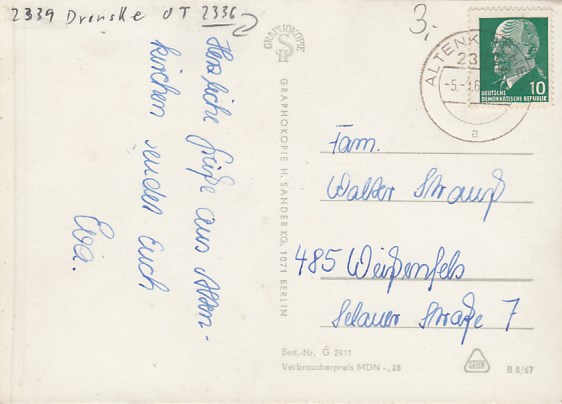 2339 Dranske OT 2336
3,-
Herzliche Grüße aus Alten-
kirchen senden Euch
Eva.
GRAPHOKOPIE
GRAPHOKOPIE H. SANDER KG, 1071 BERLIN
ALTENK
23
-5.-
a
DEUTSCHE
DEMOKRATISCHE REPUBLIK
10
Fam.
Walter Strauß
485 Weißenfels
Selauer Straße 7
Best.-Nr. G 2411
Verbraucherpreis MDN -,25
B 8/67